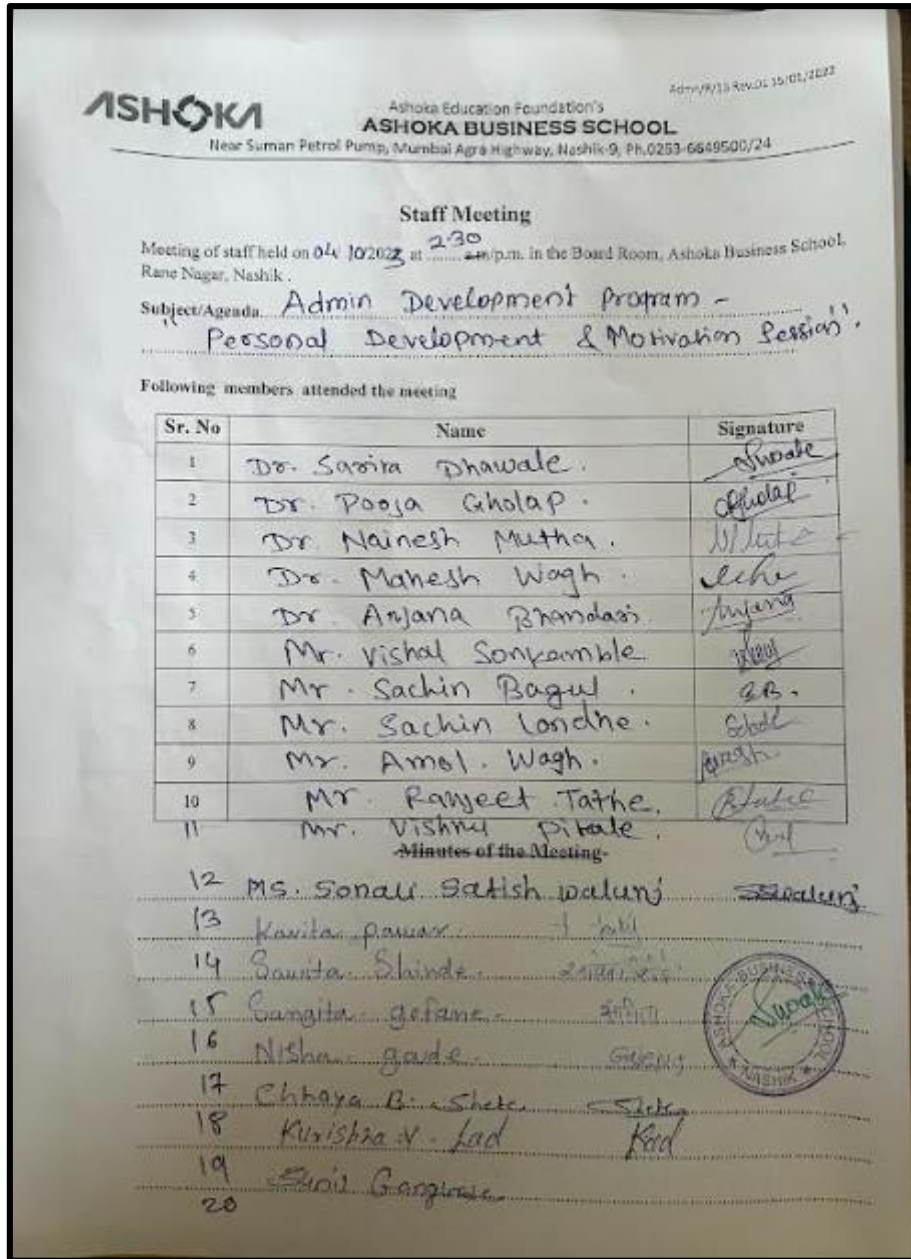 Adm/R/13 Rev.01 15/01/2022
ASHOKA
Ashoka Education Foundation's
ASHOKA BUSINESS SCHOOL
Near Suman Petrol Pump, Mumbai Agra Highway, Nashik-9, Ph.0253-6649500/24
Staff Meeting
Meeting of staff held on 04/10/2023 at 2.30 a.m/p.m. in the Board Room, Ashoka Business School,
Rane Nagar, Nashik .
Subject/Agenda Admin Development Program -
"Personal Development & Motivation Session".
Following members attended the meeting
Sr. No Name Signature
1 Dr. Sarita Dhawale.
2 Dr. Pooja Gholap. Gholap
3 Dr. Nainesh Mutha.
4 Dr. Mahesh Wagh.
5 Dr. Anjana Bhandari Anjana
6 Mr. Vishal Sonkamble
7 Mr. Sachin Bagul. SB.
8 Mr. Sachin Londhe.
9 Mr. Amol. Wagh.
10 Mr. Ranjeet Tathe.
11 Mr. Vishnu Pitale.
Minutes of the Meeting
12 Ms. Sonali Satish walunj SSwalunj
13 Kavita pawar
14 Savita Shinde
15 Sangita gefane संगीता
16 Nisha gaude
17 Chhaya B. Shete Shete
18 V. Lad
19 Sunil
20
ASHOKA BUSINESS SCHOOL
NASHIK